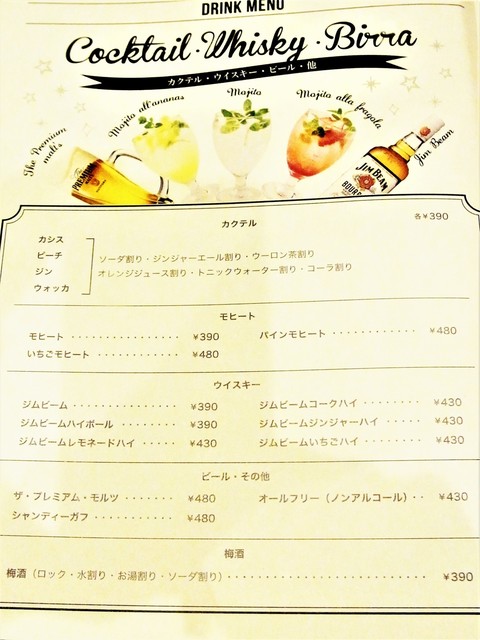 DRINK MENU
Cocktail・Whisky・Birra
カクテル・ウイスキー・ビール・他
The Premium malt's
Mojito all'ananas
Mojito
Mojito alla fragola
Jim Beam
PREMIUM
JIM BEAM
カクテル 各¥390
カシス
ピーチ
ジン
ウォッカ
ソーダ割り・ジンジャーエール割り・ウーロン茶割り
オレンジジュース割り・トニックウォーター割り・コーラ割り
モヒート
モヒート ················ ¥390
パインモヒート ············ ¥480
いちごモヒート ············ ¥480
ウイスキー
ジムビーム ··············· ¥390
ジムビームコークハイ ········ ¥430
ジムビームハイボール ········ ¥390
ジムビームジンジャーハイ ····· ¥430
ジムビームレモネードハイ ····· ¥430
ジムビームいちごハイ ········ ¥430
ビール・その他
ザ・プレミアム・モルツ ······· ¥480
オールフリー（ノンアルコール）·· ¥430
シャンディーガフ ··········· ¥480
梅酒
梅酒（ロック・水割り・お湯割り・ソーダ割り）·························· ¥390